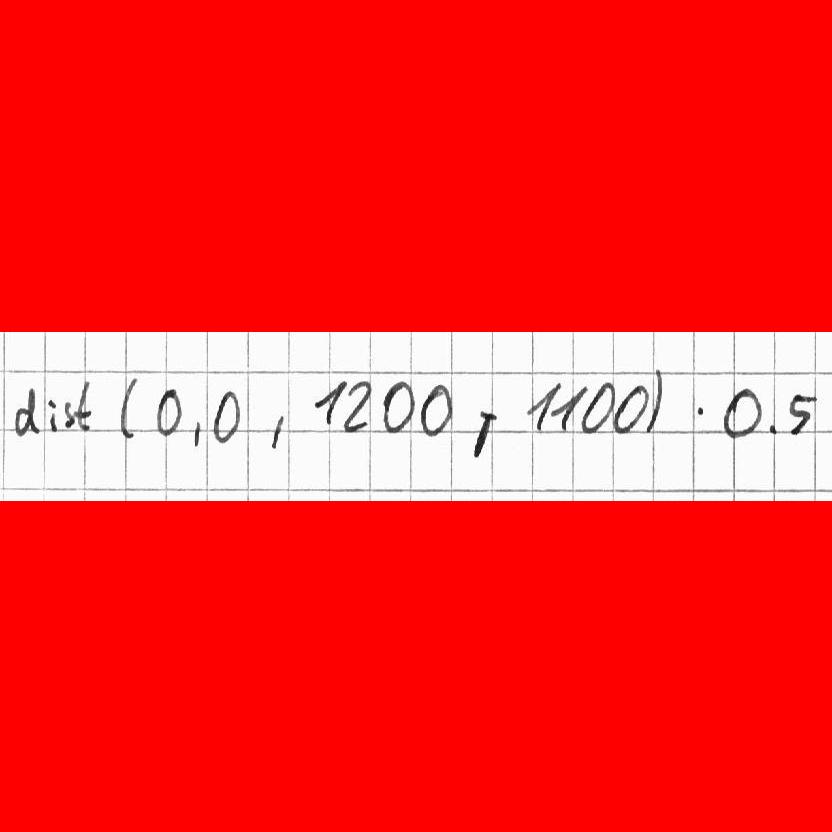 dist (0,0, 1200, 1100) · 0.5